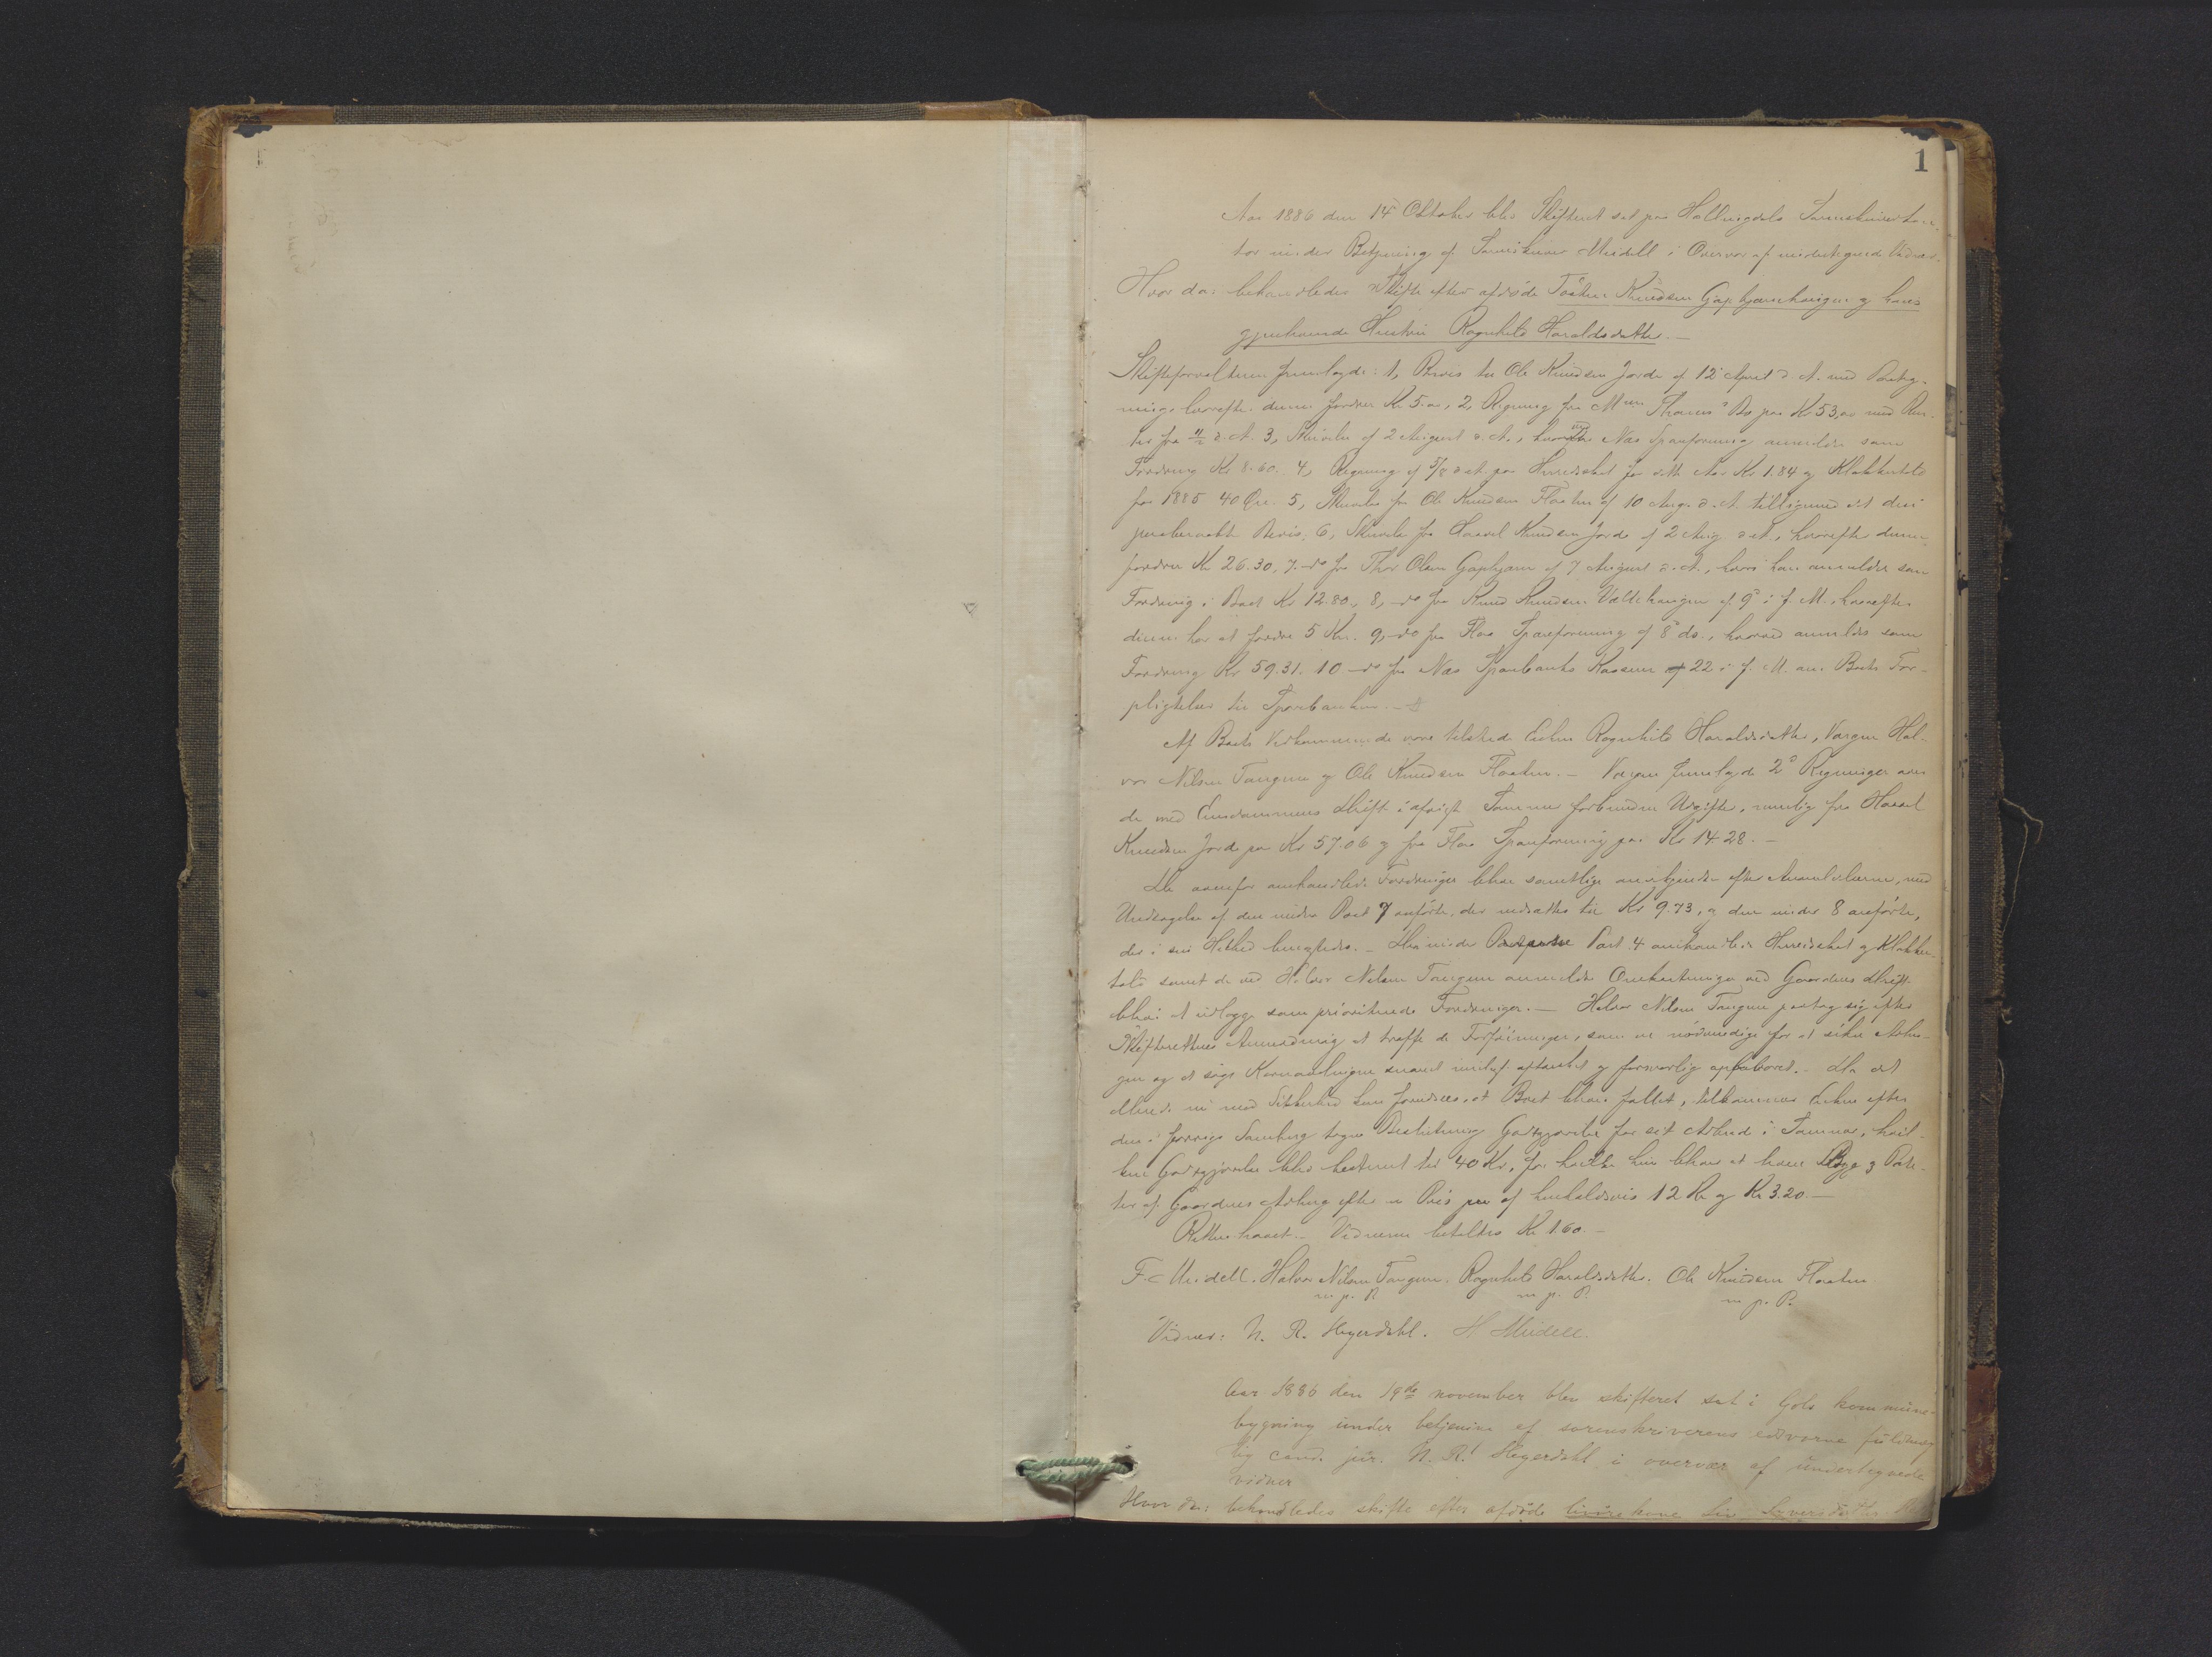 1
Aar 1886 den 14 Oktober blev Skifteret sat paa Hallingdals Sorenskriverkon-
tor under Betjening af Sorenskriver Meidell i Overvær af undertegnede Vidner.
Hvor da: behandledes Skifte efter afdøde Tosten Knudsen Gaphjærnhaugen og hans
gjenlevende Hustru Ragnhild Haraldsdatter. -
Skifteforvalteren fremlagde: 1, Bevis til Ole Knudsen Jorde af 12 April d. A. med Paateg-
nings hvorefter denne fordrer Kr 5.00, 2, Regning fra Thranes Bo paa Kr 53,00 med Ren-
ter fra d. A. 3, Skrivelse af 2 August d. A., Næs Spareforening anmelder som
Fordring Kr 8.60. 4, Regning af 5/8 d. A. paa Herredskat for dette Aar Kr 1.84 og Klokkertold
for 1885 40 Øre. 5, Skrivelse fra Ole Knudsen Flaaten af 10 Aug. d. A. tilligemed det deri
paaberaabte Bevis. 6, Skrivelse fra Haavel Knudsen Jorde af 2 Aug d. A., hvorefter denne
fordrer Kr 26.30, 7. do fra Thor Olsen Gaphjærn af 7 August d. A., hvori han anmelder som
Fordring i Boet Kr 12.80, 8, do fra Knud Knudsen af 9 i f. M. hvorefter
denne har at fordre 5 Kr. 9, do fra Flaa Spareforening af 8 do., hvorved anmeldes som
Fordring Kr 59.31. 10 do fra Næs Sparebanks Kasserer af 22 i f. M. om Boets For-
pligtelser til Sparebanken. -
Af Boets Vedkommende vare tilstede Enken Ragnhild Haraldsdatter, Værgen Hal-
vor Nilsen Tangen og Ole Knudsen Flaaten. - Værgen fremlagde 2 Regninger over
de med Eiendommens Drift i afvigte Sommer forbundne Udgifter, nemlig fra Haavel
Knudsen Jorde paa Kr 57.06 og fra Flaa Spareforening paa Kr 14.28. -
De ovenfor omhandlede Fordringer blev samtlige anerkjendte efter Anmeldelserne, med
Undtagelse af den under Post 7 anførte, der nedsattes til Kr 9.73, og den under 8 anførte,
der i sin Helhed benegtedes. - Den under Post 4 omhandlede Herredskat og Klokker-
told samt de ved Halvor Nilsen Tangen anmeldte Omkostninger ved Gaardens Drift
blev at udlægge som prioriterede Fordringer. - Halvor Nilsen Tangen paatog sig efter
Skifterettens Anmodning at træffe de Forføininger, som er nødvendige for at sikre Avlin-
gen og at søge Kornavlingen snarest muligt aftærsket og forsvarlig opbevaret. - Da det
allerede nu med Sikkerhed kan forudsees, at Boet bliver fallit, tilkommer Enken efter
den i forrige Samling tagne Beslutning Godtgjørelse for sit Arbeide i Sommer, hvil-
ken Godtgjørelse blev bestemt til 40 Kr, for hvilke hun bliver at have Byg og Pote-
ter af Gaardens Avling efter en Pris af henholdsvis 12 Kr og Kr 3.20. -
Retten hævet. - Vidnerne betaltes Kr 1.60. -
F C Meidell. Halvor Nilsen Tangen. Ragnhild Haraldsdatter. Ole Knudsen Flaaten
m. p. P. m. p. P. m. p. P.
Vidner: N. R. Hegerdahl. H Meidell.
Aar 1886 den 19de november blev skifteret sat i Gols kommune-
bygning under betjening af sorenskriverens edsvorne fuldmæg-
tig cand. jur. N. R. Hegerdahl i overvær af undertegnede
vidner
Hvor da: behandledes skifte efter afdøde Liv Syversdatter